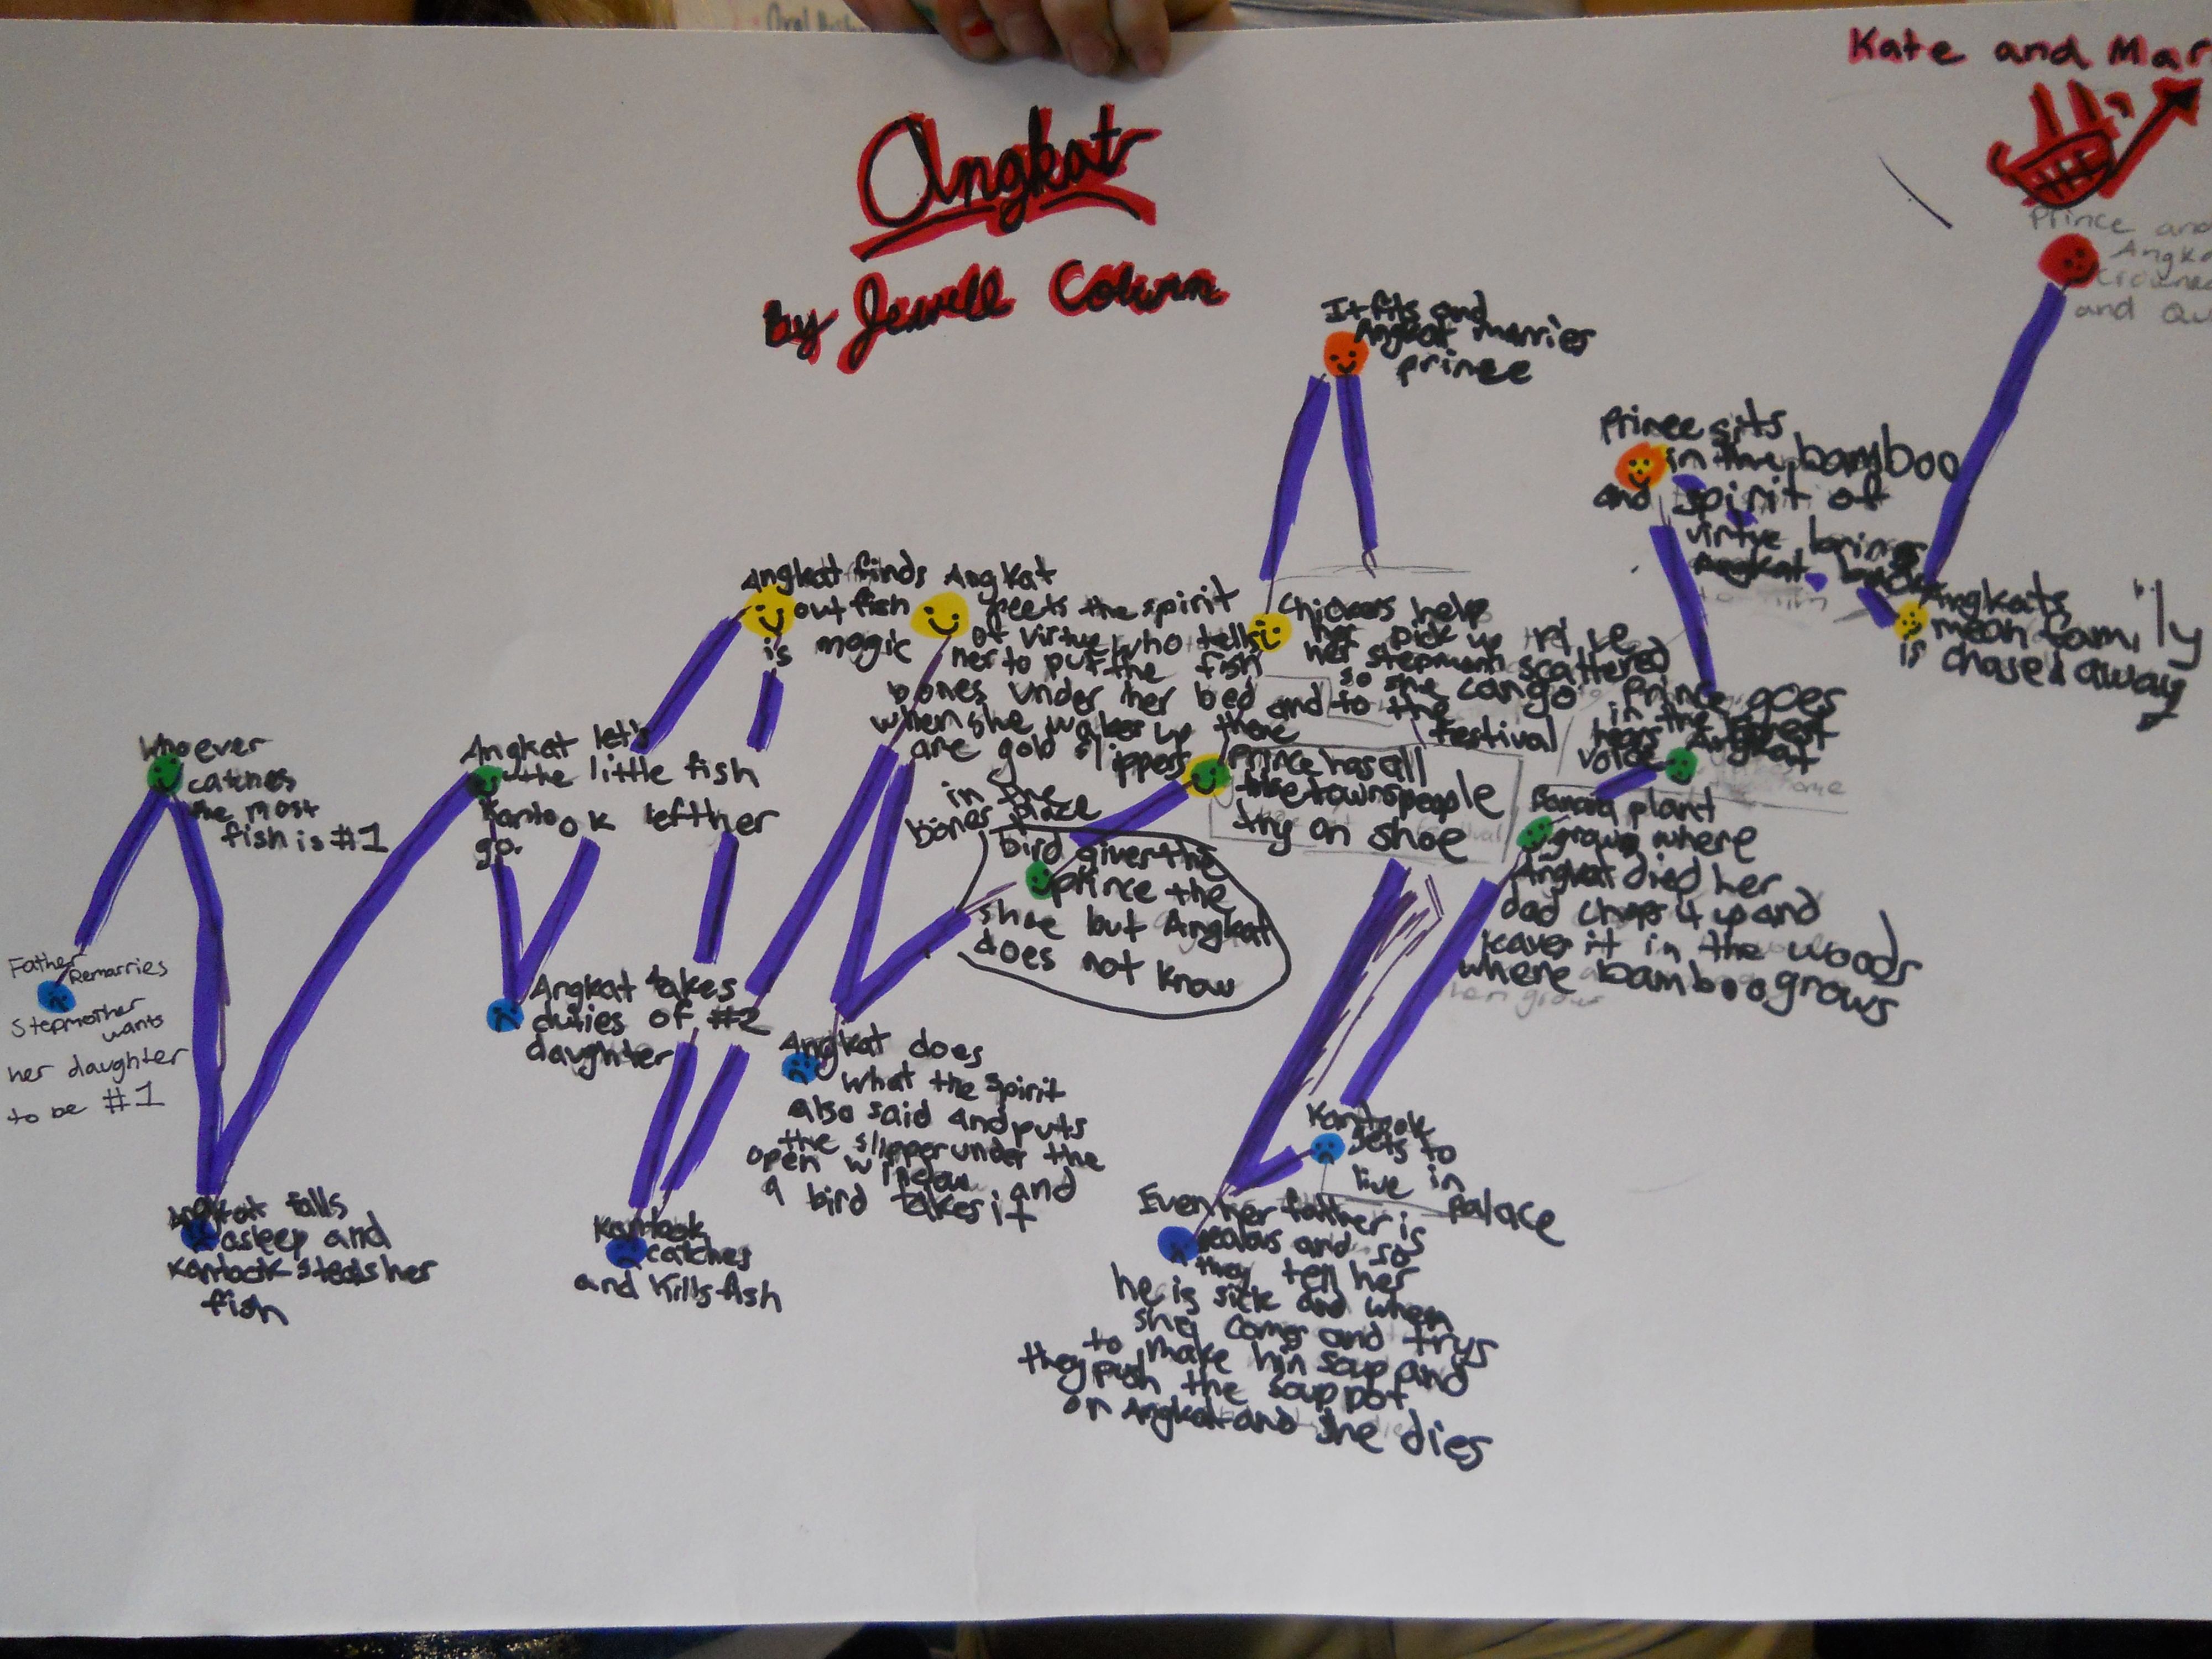 Oral
Kate and Mar
Angkat
By Jewell Coburn
Father
Remarries
Stepmother
wants
her daughter
to be #1
Whoever
catches
the most
fish is #1
Angkat falls
asleep and
Kantook steals her
fish
Angkat let's
the little fish
go.
Kantook left her
Angkat takes
duties of #2
daughter
Angkat finds
out fish
is magic
Kantook
catches
and kills fish
Angkat
meets the spirit
of virtue who tells
her to put the fish
bones under her bed and
when she wakes up there
are gold slippers
in the
bones place
Angkat does
what the spirit
also said and puts
the slipper under the
open window and
a bird takes it
bird gives the
prince the
shoe but Angkat
does not know
Prince has all
the townspeople
try on shoe
Chickens help
her pick up rice
her stepmom scattered
so she can go
to the
festival
It fits and
Angkat marries
prince
Even her father is
jealous and so
they tell her
he is sick and when
she comes and trys
to make him soup and
they push the soup pot
on Angkat and she dies
Kantook
gets to
live in
Palace
Banana plant
grows where
Angkat died her
dad chops it up and
leaves it in the woods
where bamboo grows
Prince goes
in the forest
hears Angkat
voice
Prince sits
in the bamboo
and spirit of
virtue brings
Angkat back
to him
Angkats
mean family
is chased away
Prince and
Angka
Crowned
and Qu